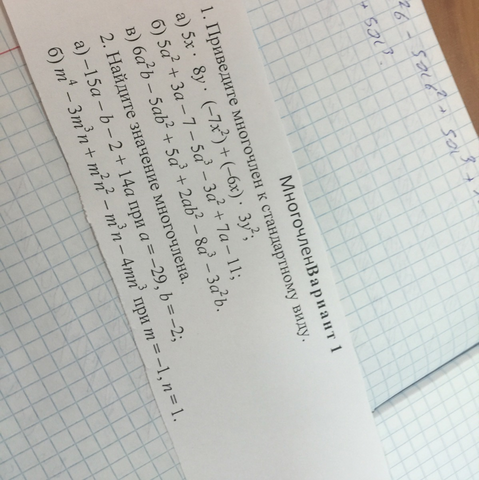 МногочленВариант 1
1. Приведите многочлен к стандартному виду.
а) 5x · 8y · (−7x²) + (−6x) · 3y²;
б) 5a² + 3a − 7 − 5a³ − 3a² + 7a − 11;
в) 6a²b − 5ab² + 5a³ + 2ab² − 8a³ − 3a²b.
2. Найдите значение многочлена.
а) −15a − b − 2 + 14a при a = −29, b = −2;
б) m⁴ − 3m³n + m²n² − m³n − 4mn³ при m = −1, n = 1.